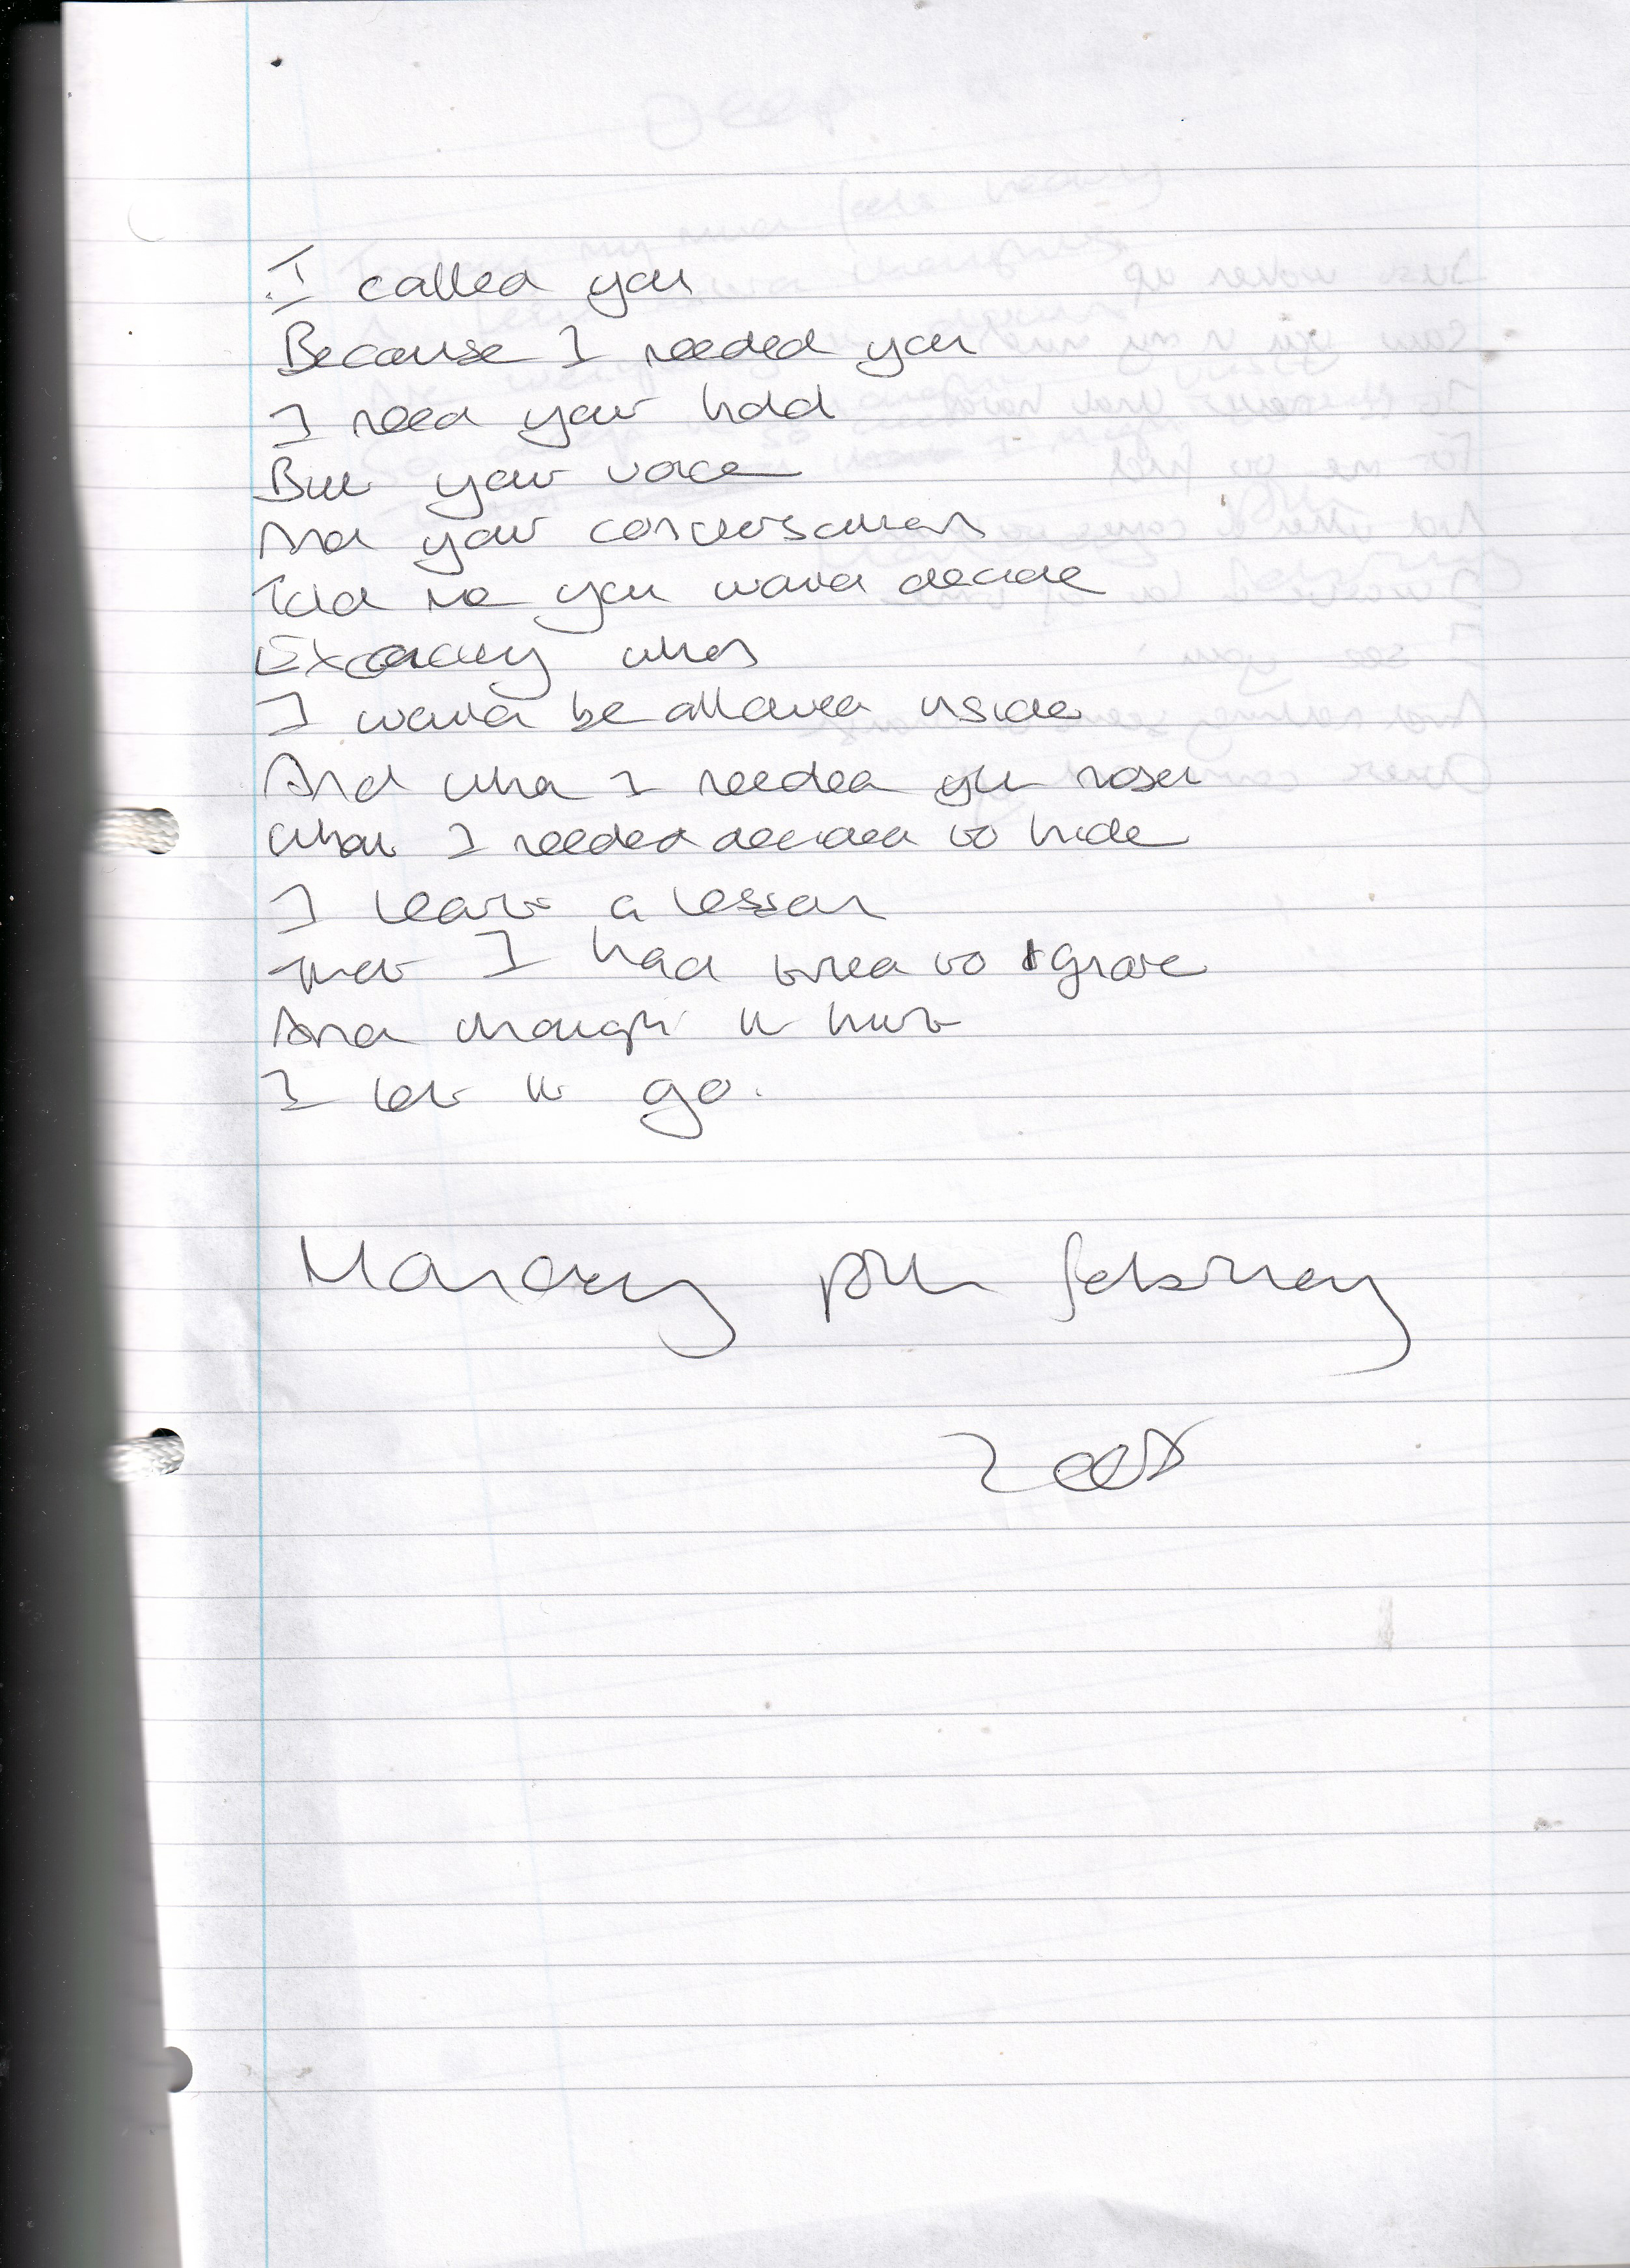 I called you
Because I needed you
I need your hold
But your voice
And your conversation
Told me you would decide
Exactly when
I would be allowed inside
And when I needed you most
What I needed decided to hide
I leart a lesson
That I had tried to ignore
And though it hurt
I let it go.
Monday February
2008